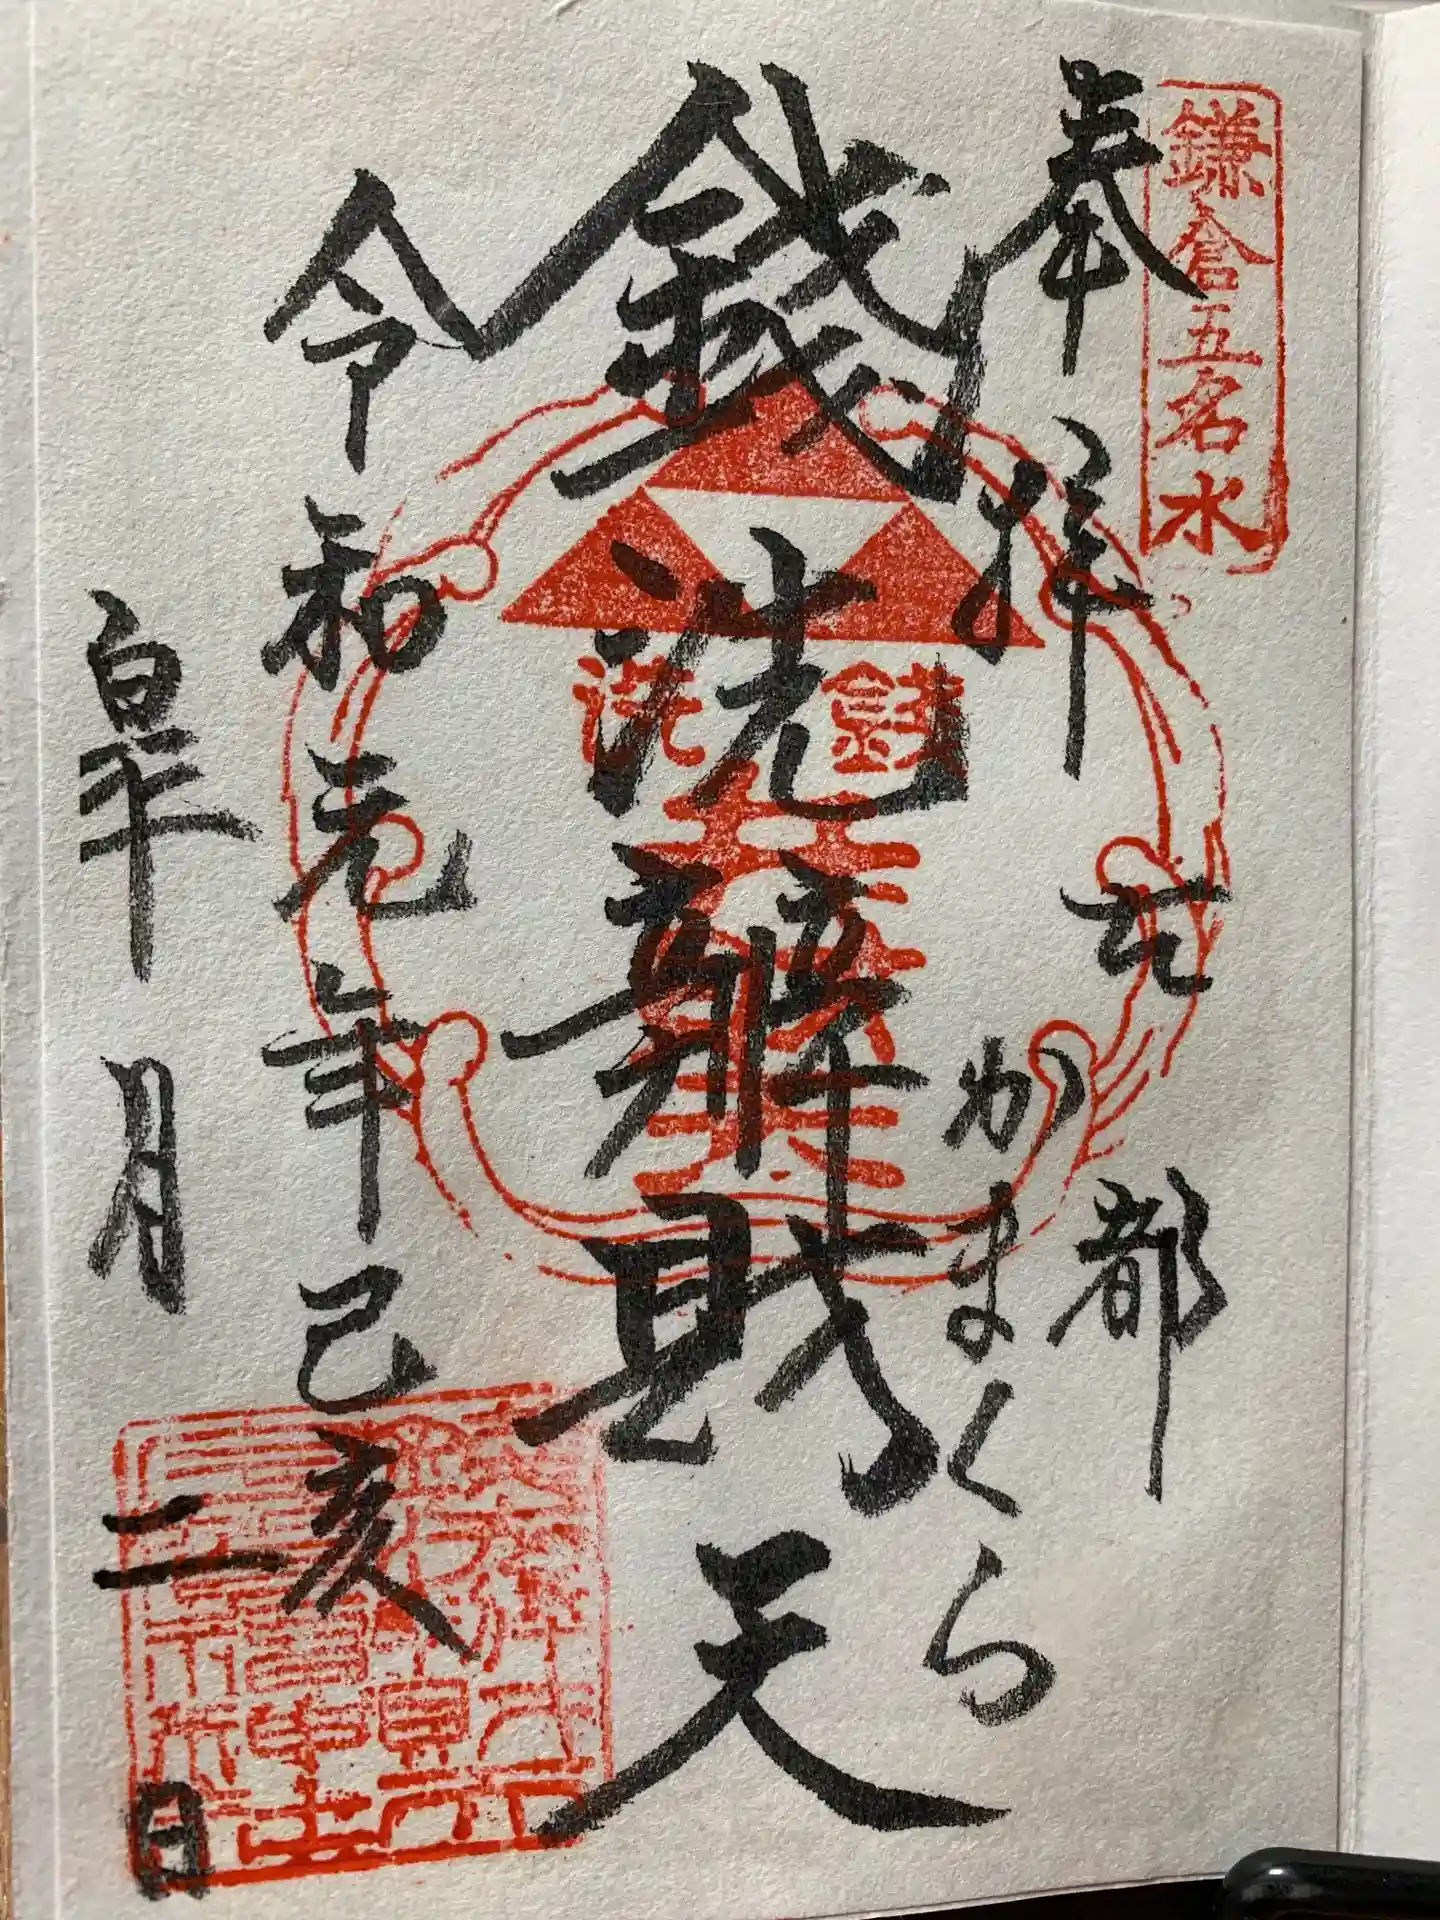 鎌倉五名水
奉拝 古都
かまくら
銭洗辨財天
銭洗
令和元年己亥
皐月二日